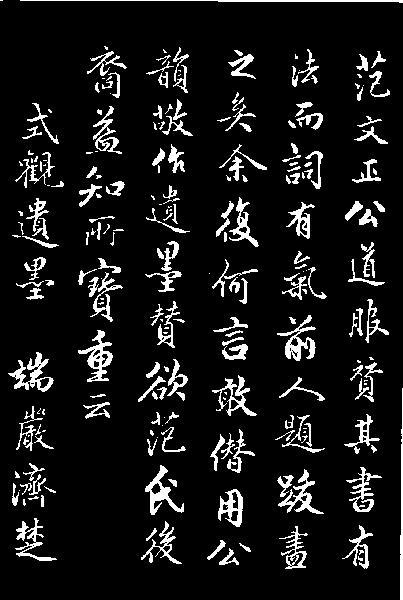 范文正公道服賛其書有
法而詞有氣前人題跋盡
之矣余復何言敢僣用公
韻敬作遺墨賛欲范氏後
裔益知所寶重云
式觀遺墨 端嚴濟楚